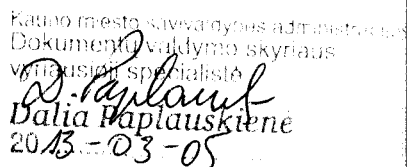 Kauno miesto savivaldybės administracijos
Dokumentų valdymo skyriaus
vyriausioji specialistė
D. Paplausk
Dalia Paplauskienė
2013-03-05